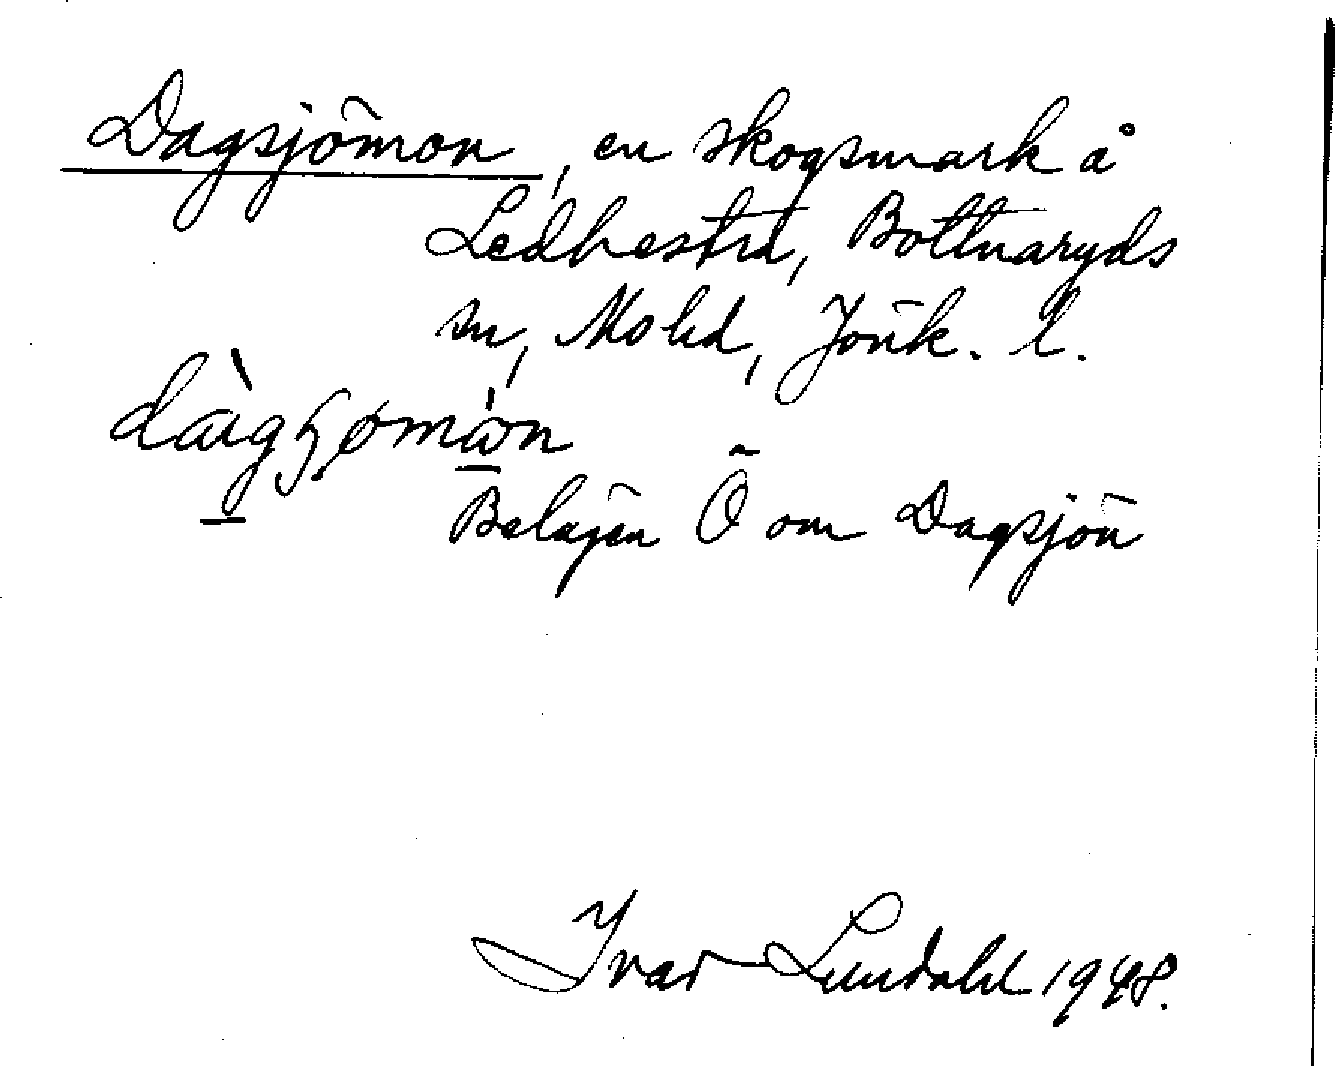 Dagsjömon, en skogsmark å
Ledhestra, Bottnaryds
sn, Mo hd, Jönk. l.
Belägen Ö om Dagsjön
Ivar Lundahl 1948.